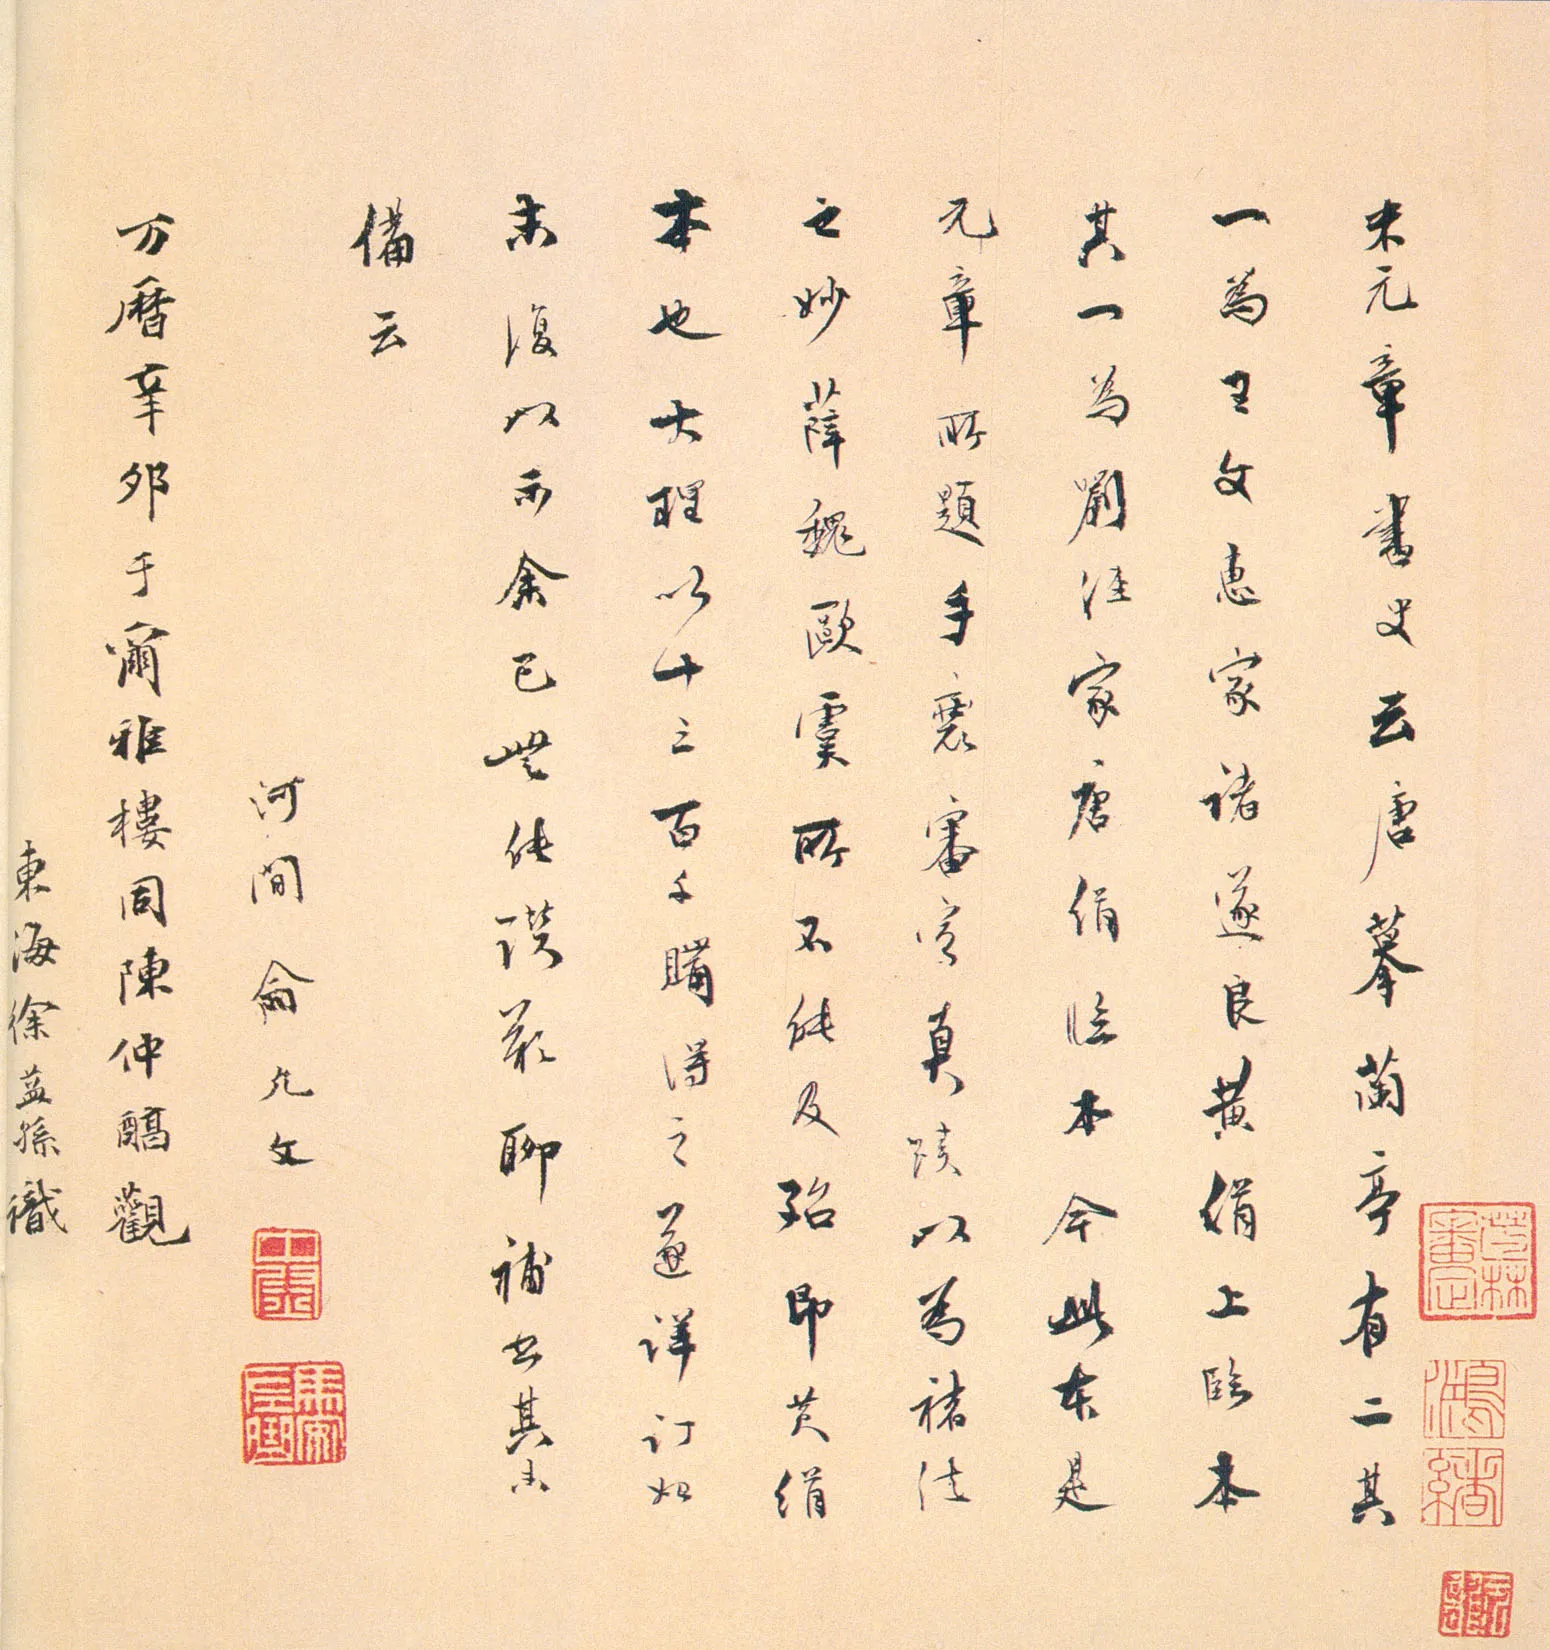 米元章書史云唐摹蘭亭有二其
一為王文惠家褚遂良黃絹上臨本
其一為劉涇家唐絹臨本今此本是
元章所題手裝審定真蹟以為褚法
之妙薛魏歐虞所不能及殆即黃絹
本也大理以十三百千購得之遂詳訂如
末復以示余已無能讚歎聊補書其未
備云
河間俞允文
万曆辛卯于爾雅樓同陳仲醕觀
東海徐益孫識
芳林審定
鴻緒